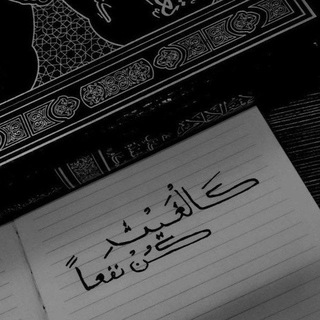 كَالْغَيْثِ
كُنْ نفعاً